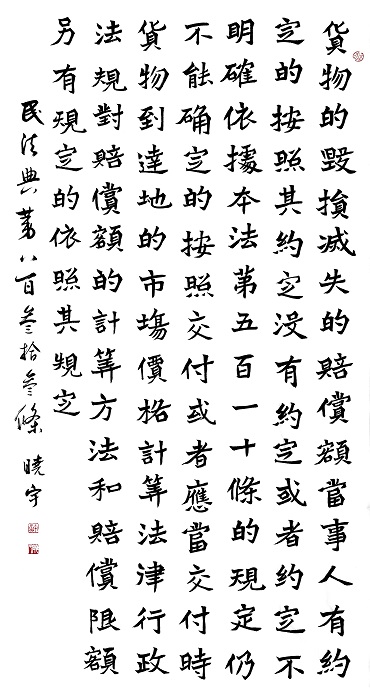 貨物的毀損滅失的賠償額當事人有約
定的按照其約定没有約定或者約定不
明確依據本法第五百一十條的規定仍
不能确定的按照交付或者應當交付時
貨物到達地的市場價格計算法律行政
法規對賠償額的計算方法和賠償限額
另有規定的依照其規定
民法典第八百叁拾叁條 曉宇